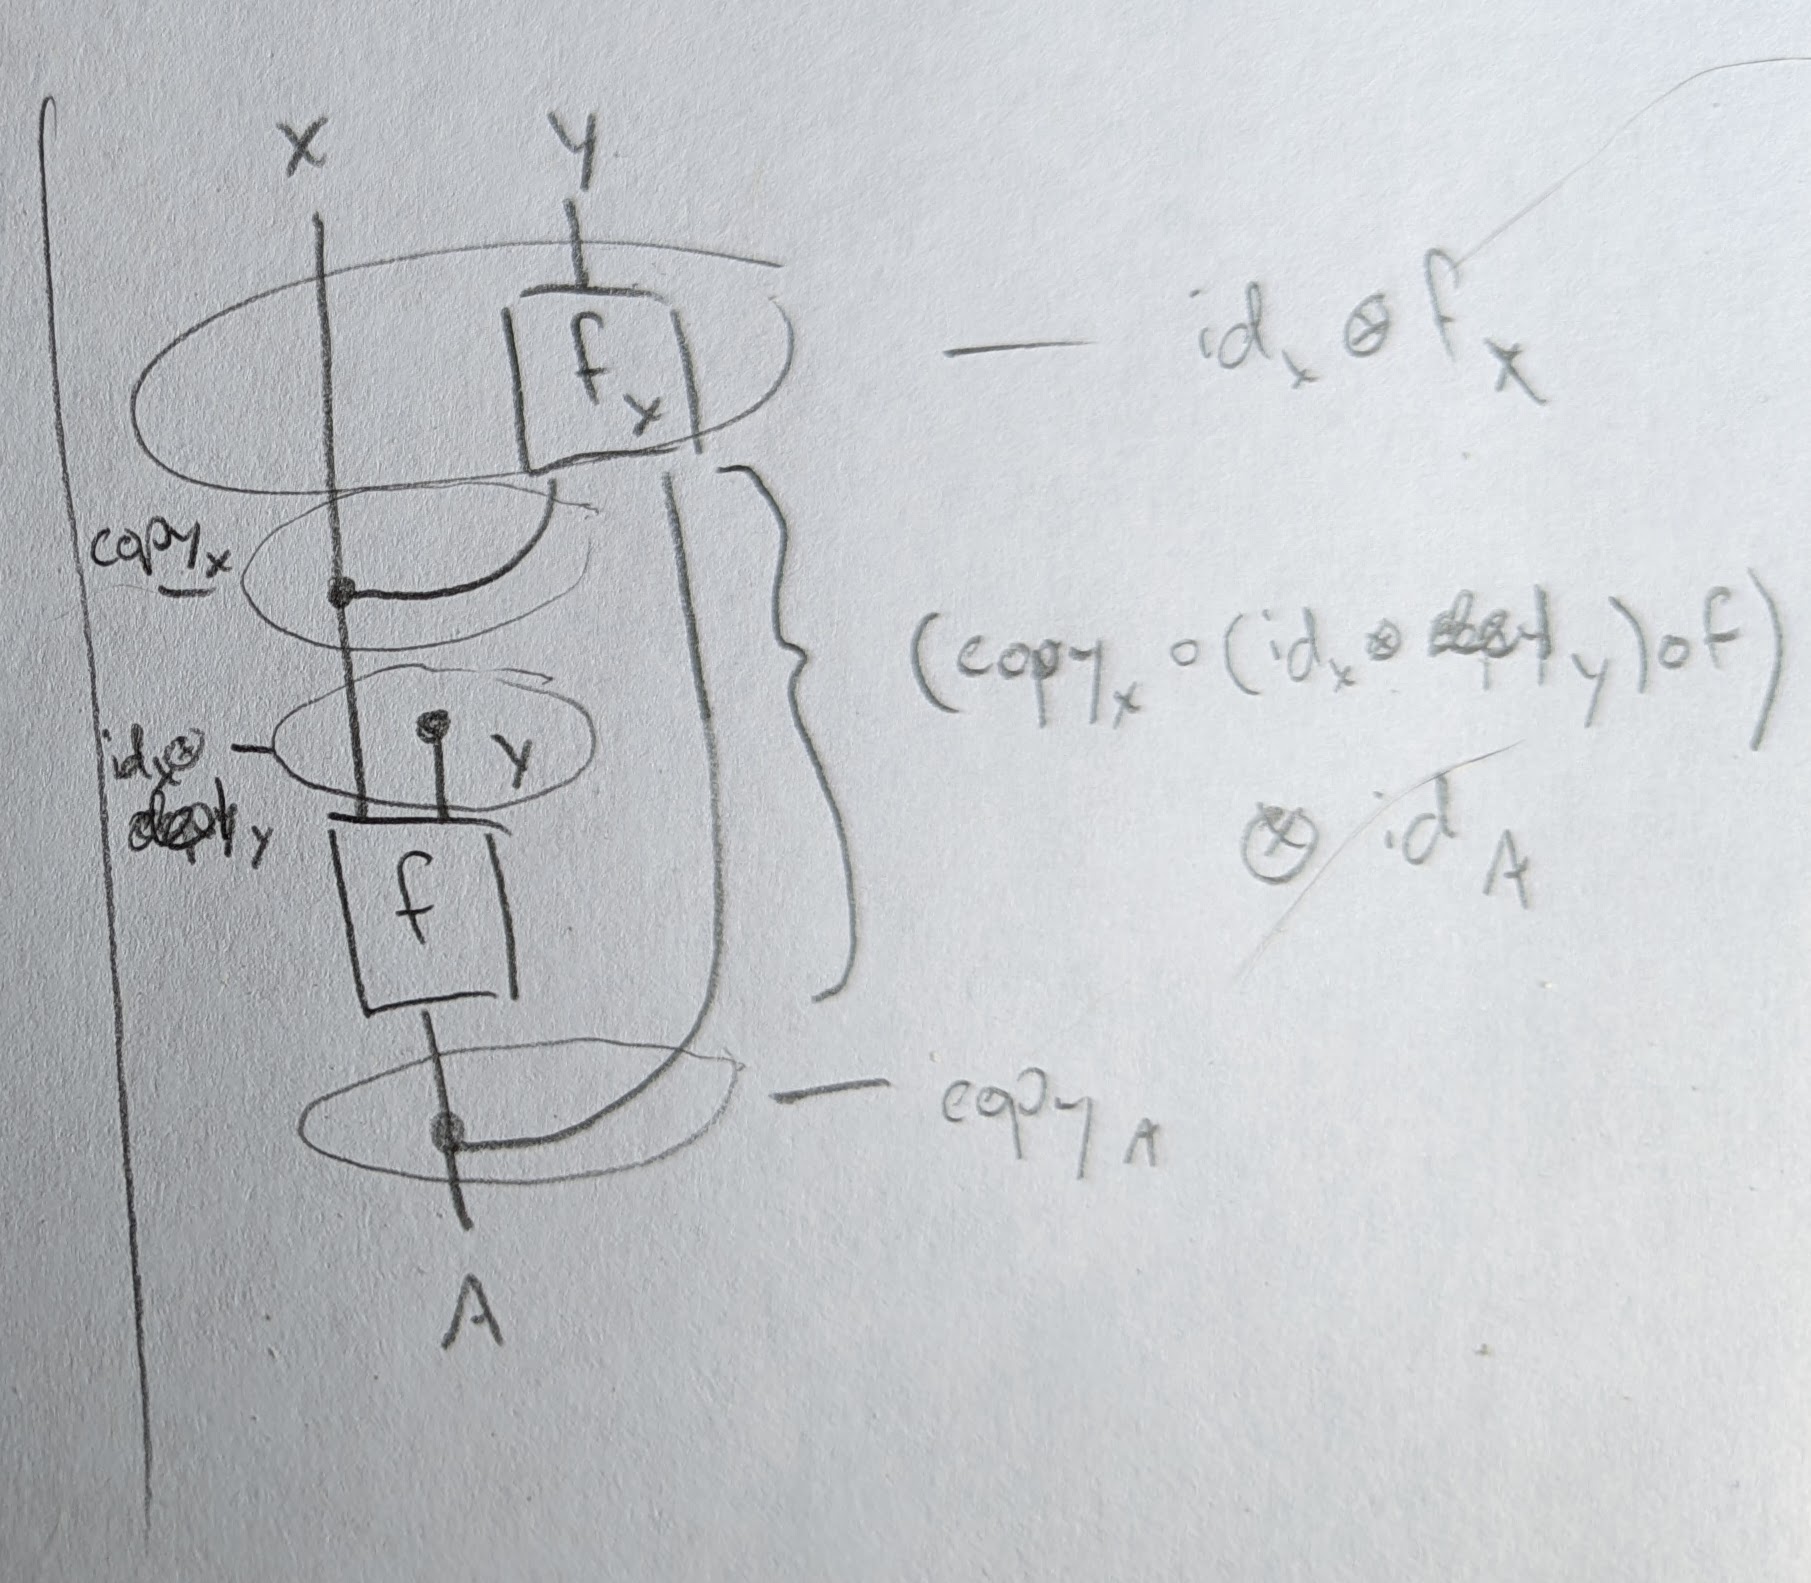 X Y
f_X — id_X ⊗ f_X
copy_X
(copy_X ∘ (id_X ⊗ _Y) ∘ f)
id_X ⊗ Y
_Y
⊗ id_A
f
— copy_A
A